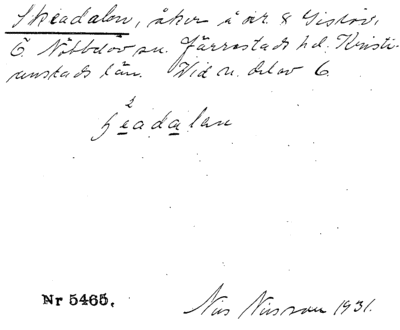 Skeadalen, åker å nr. 8 Gislöv,
Ö. Nöbbelöv sn. Järrestads hd. Kristi-
anstads län. Vid n. delav 6.
2
ꜧeadalen
Nr 5465.
Nils Nilsson 1931.